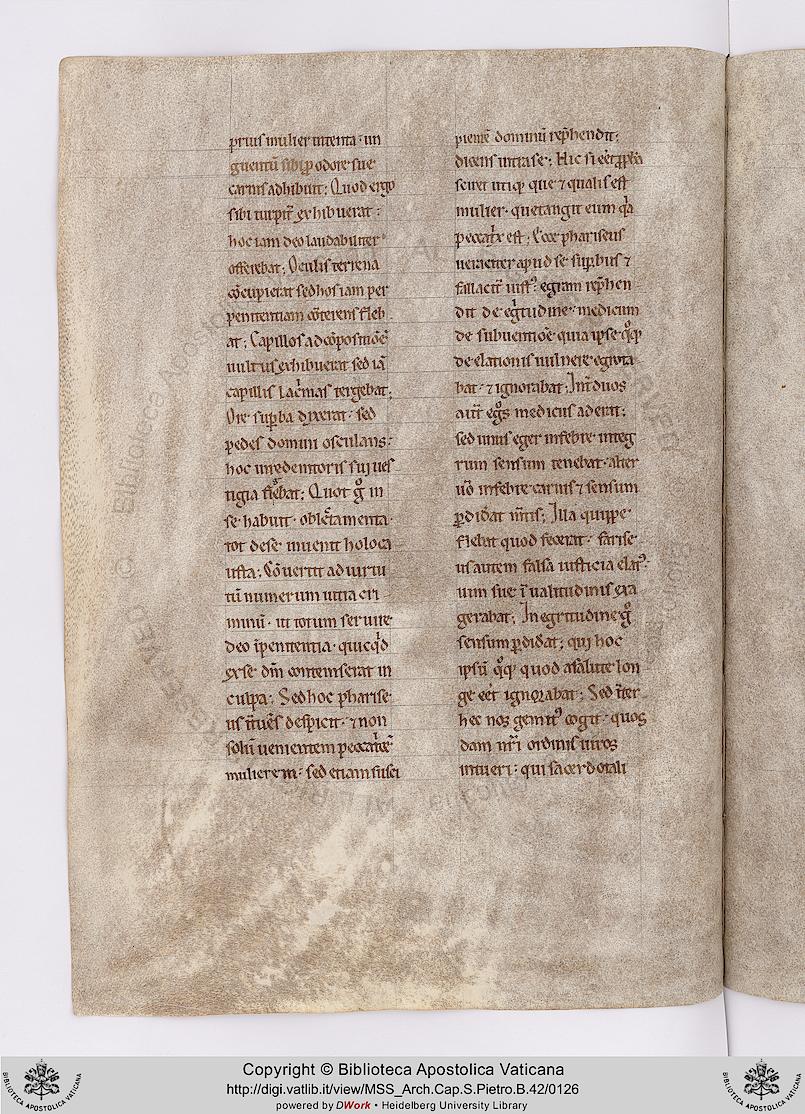 prius mulier intenta · un
guentū sibi ꝓ odore sue
carnis adhibuit; Quod ergo
sibi turpit̄ exhibuerat ·
hoc iam deo laudabiliter
offerebat; Oculis terrena
c̄cupierat sed hos iam per
penitentiam c̄terens fleb
at; Capillos ad c̄positionē
uultus exhibuerat sed iā
capillis lac̄mas tergebat;
Ore suꝑba dixerat · sed
pedes domini osculans ·
hoc in redemtoris sui ues
tigia figebat; Quot gͦ in
se habuit · oblec̄tamenta
tot de se inuenit holoca
usta; Cōuertit ad uirtu
tū numerum uitia cri
minū · ut totum seruiret
deo ī penitentia · quicqͥd
ex se dm̄ contemserat in
culpa; Sed hoc pharise
us ītuēs despicit · ⁊ non
solū uenientem peccatͥcē
mulierem · sed etiam susci
pientē dominū rep̄hendit;
dicens intra se; Hic si eēt ꝓph̄a
sciret utiqꝫ que ⁊ qualis est
mulier · que tangit eum qͥa
peccatͥx est; Ecce phariseus
ueraciter apud se suꝑbus ⁊
fallacit̄ iustꝰ · egram rep̄hen
dit de egͥtudine · medicum
de subuentiōe quia ipse qͦqꝫ
de elationis uulnere egrota
bat · ⁊ ignorabat; Int̄ duos
aut̄ egͦs medicus aderat;
sed unus eger in febre integ
rum sensum tenebat · alter
uͦ in febre carnis ⁊ sensum
ꝑdidat m̄tis; Illa quippe
flebat quod fecerat · farise
us autem falsa iusticia elatꝰ ·
uim sue ī ualitudinis exa
gerabat; In egritudine gͦ
sensum ꝑdidat; qui hoc
ipsū qͦqꝫ quod a salute lon
ge eēt ignorabat; Sed īter
hec nos gemitꝰ cogit · quos
dam nr̄i ordinis uiros
intueri · qui sacerdotali
Copyright © Biblioteca Apostolica Vaticana
http://digi.vatlib.it/view/MSS_Arch.Cap.S.Pietro.B.42/0126
powered by DWork • Heidelberg University Library
BIBLIOTECA APOSTOLICA VATICANA
BIBLIOTECA APOSTOLICA VATICANA